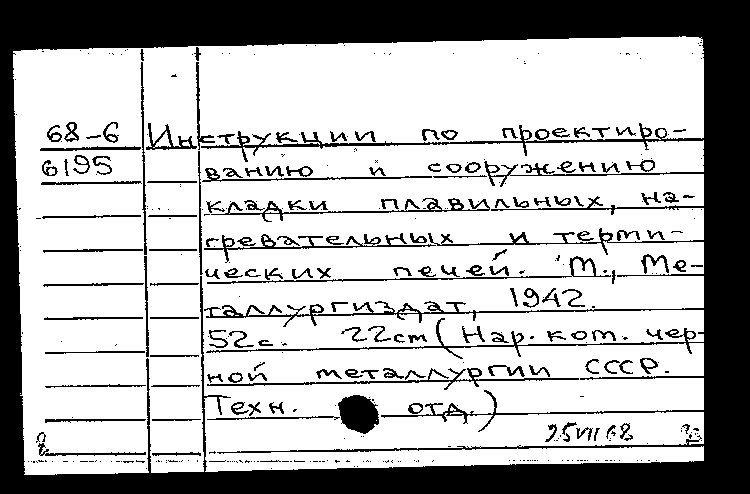 68-6 Инструкции по проектиро-
6195 ванию и сооружению
кладки плавильных, на-
гревательных и терми-
ческих печей. М., Ме-
таллургиздат, 1942.
52с. 22cm (Нар. ком. чер-
ной металлургии СССР.
Техн. отд.)
25 VII 68